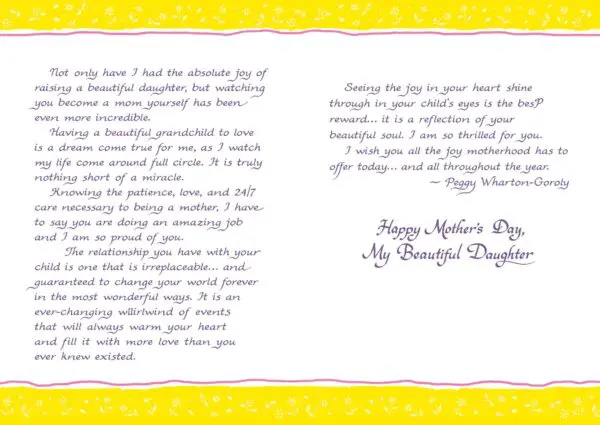 Not only have I had the absolute joy of
raising a beautiful daughter, but watching
you become a mom yourself has been
even more incredible.
Having a beautiful grandchild to love
is a dream come true for me, as I watch
my life come around full circle. It is truly
nothing short of a miracle.
Knowing the patience, love, and 24/7
care necessary to being a mother, I have
to say you are doing an amazing job
and I am so proud of you.
The relationship you have with your
child is one that is irreplaceable... and
guaranteed to change your world forever
in the most wonderful ways. It is an
ever-changing wllirlwind of events
that will always warm your heart
and fill it with more love than you
ever knew existed.
Seeing the joy in your heart shine
through in your child's eyes is the besP
reward... it is a reflection of your
beautiful soul. I am so thrilled for you.
I wish you all the joy motherhood has to
offer today... and all throughout the year.
~ Peggy Wharton-Goroly
Happy Mother's Day,
My Beautiful Daughter